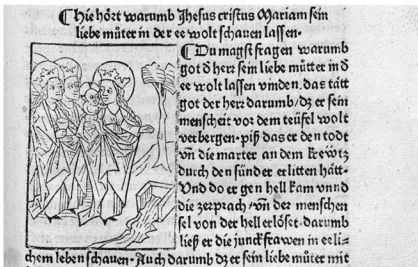 ¶ Hie hört warumb Jhesus cristus Mariam sein
liebe můter in der ee wolt schauen lassen.
¶ Du magst fragen warumb
got ď herr sein liebe můtter in ď
ee wolt lassen vinden. das tätt
got der herr darumb/ dz er sein
menscheit vor dem teüfel wolt
verbergen. piß das er den todt
vñ die marter an dem krewtz
durch den sünder erlitten hätt.
Vnd do er gen hell kam vnnd
die zerprach/ vñ der menschen
sel von der hell erlöset. darumb
ließ er die junckfrawen in eeli-
chem leben schauen. Auch darumb dz er sein liebe můter mit